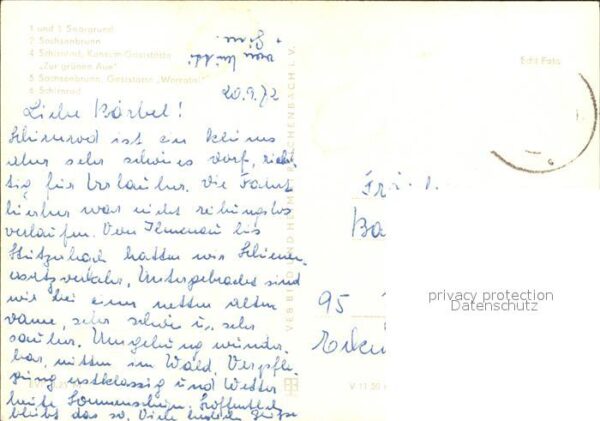 1 und 3 Saargrund
2 Sachsenbrunn
4 Schirnrod, Konsum-Gaststätte
„Zur grünen Aue"
5 Sachsenbrunn, Gaststätte „Werratal"
6 Schirnrod
Echt Foto
20.9.72
Liebe Bärbel!
Schirnrod ist ein kleines
aber sehr schönes Dorf, rich-
tig für Urlauber. Die Fahrt
hierher war nicht reibungslos
verlaufen. Von Ilmenau bis
Stützerbach hatten wir Schienen-
ersatzverkehr. Untergebracht sind
wir bei einer netten alten
Dame, sehr schön u. sehr
sauber. Umgebung wunder-
bar, mitten im Wald. Verpfle-
gung erstklassig und Wetter
heute Sonnenschein. Hoffentlich
bleibt das so. Viele
95
VEB BILD UND HEIMAT REICHENBACH I. V.
privacy protection
Datenschutz